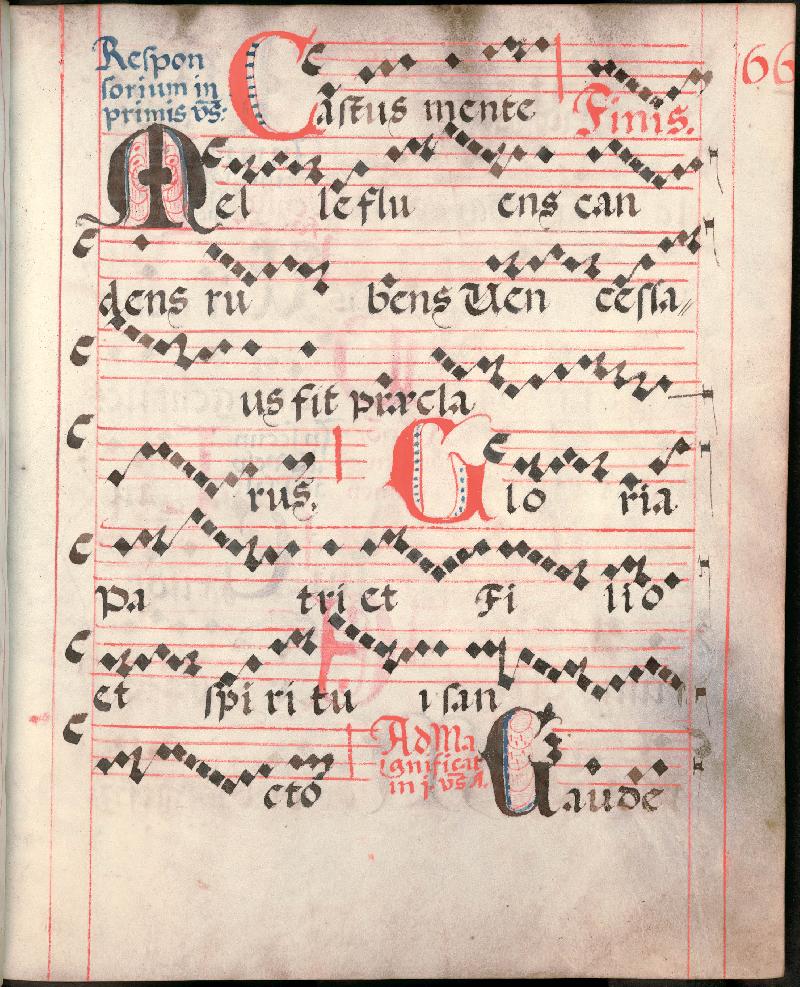 66
Respon
sorium in
primis vs:
Castus mente Finis.
Mel leflu ens can
dens ru bens Uen cessla
us fit præcla
rus. Glo ria
Pa tri et Fi lio
et spi ri tu i san
cto Ad Ma
gnificat
in j. vs A.
Gaude